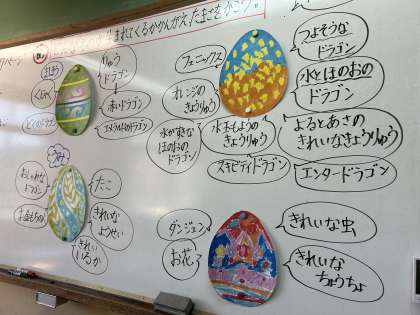 まれてくるかかんがえ、たまごをかこう。
りゅう
ドラゴン
赤いドラゴン
エメラルドのドラゴン
どくのドラゴン
フェニックス
オレンジの
きょうりゅう
水がすきな
ほのおの
ドラゴン
つよそうな
ドラゴン
水とほのおの
ドラゴン
水もようの
きょうりゅう
よるとあさの
きれいなきょうりゅう
スキビディドラゴン
エンタードラゴン
うみ
おしゃれな
ドラゴン
たこ
きれいな
ようせい
きれい
いるか
ダンジェン
お花
きれいな虫
きれいな
ちょうちょ